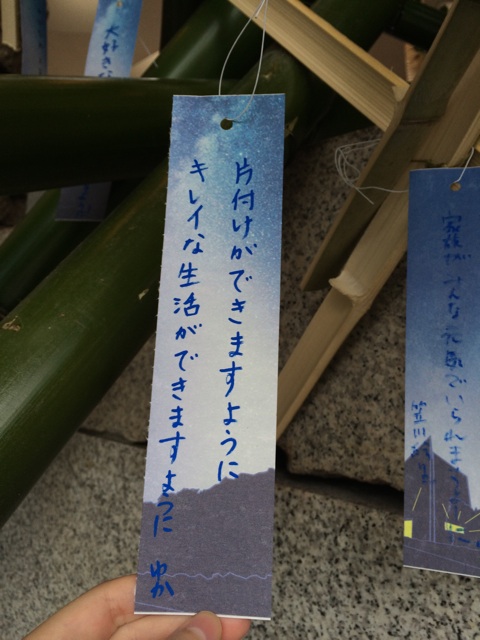 片付けができますように
キレイな生活ができますように ゆか
家族がみんな元気でいられますように
大好きな